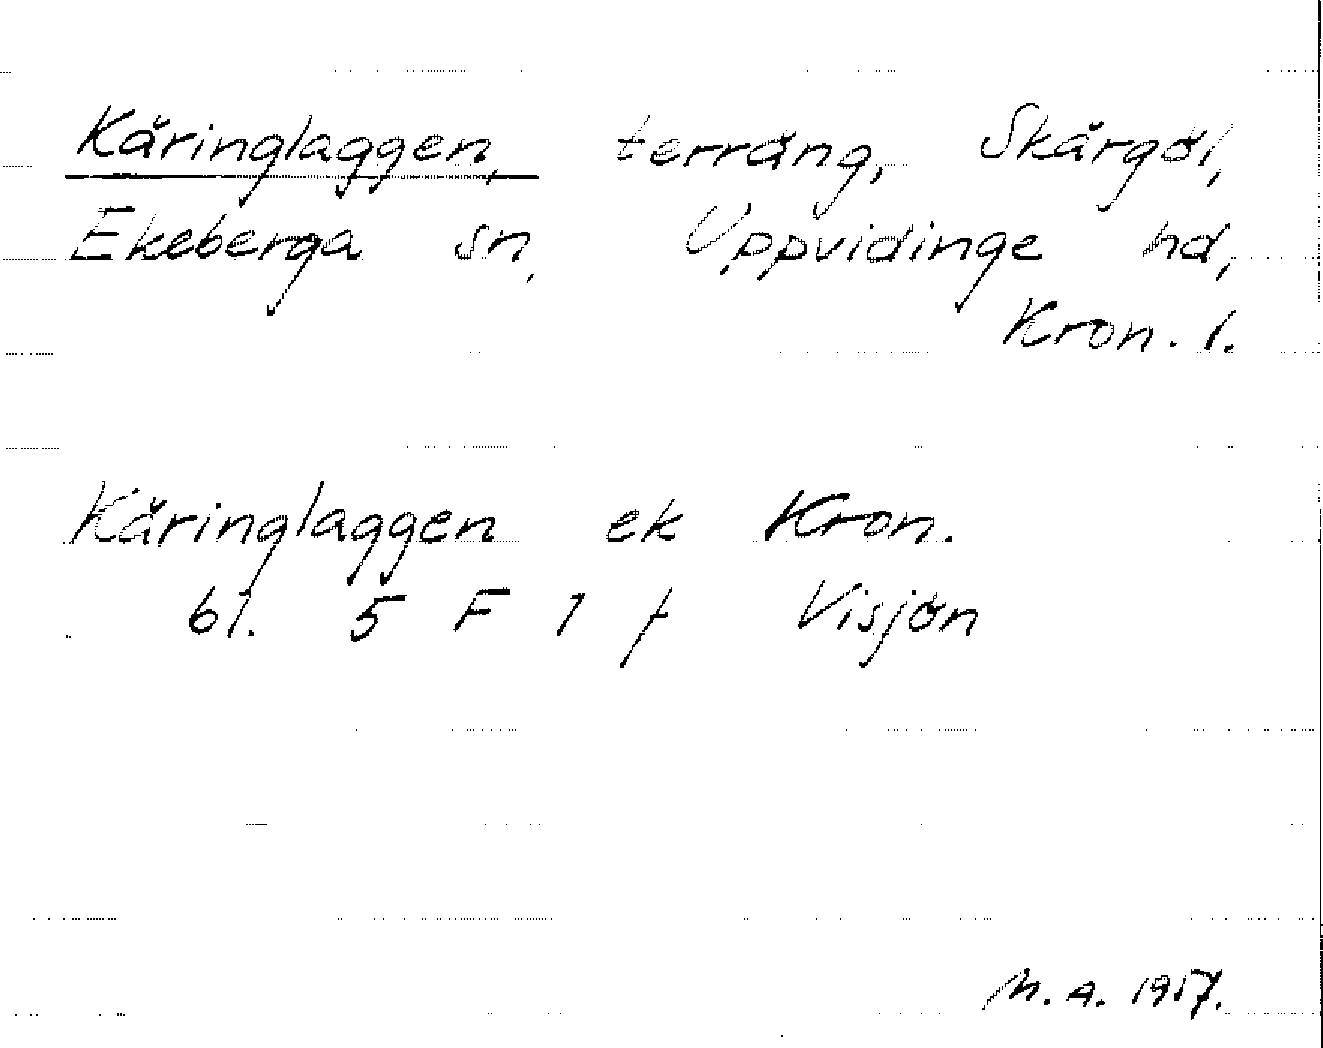 Käringlaggen, terräng, Skärgöl,
Ekeberga sn, Uppvidinge hd,
Kron. l.
Käringlaggen ek Kron.
bl. 5 F 1 f Visjön
M.A. 1957.